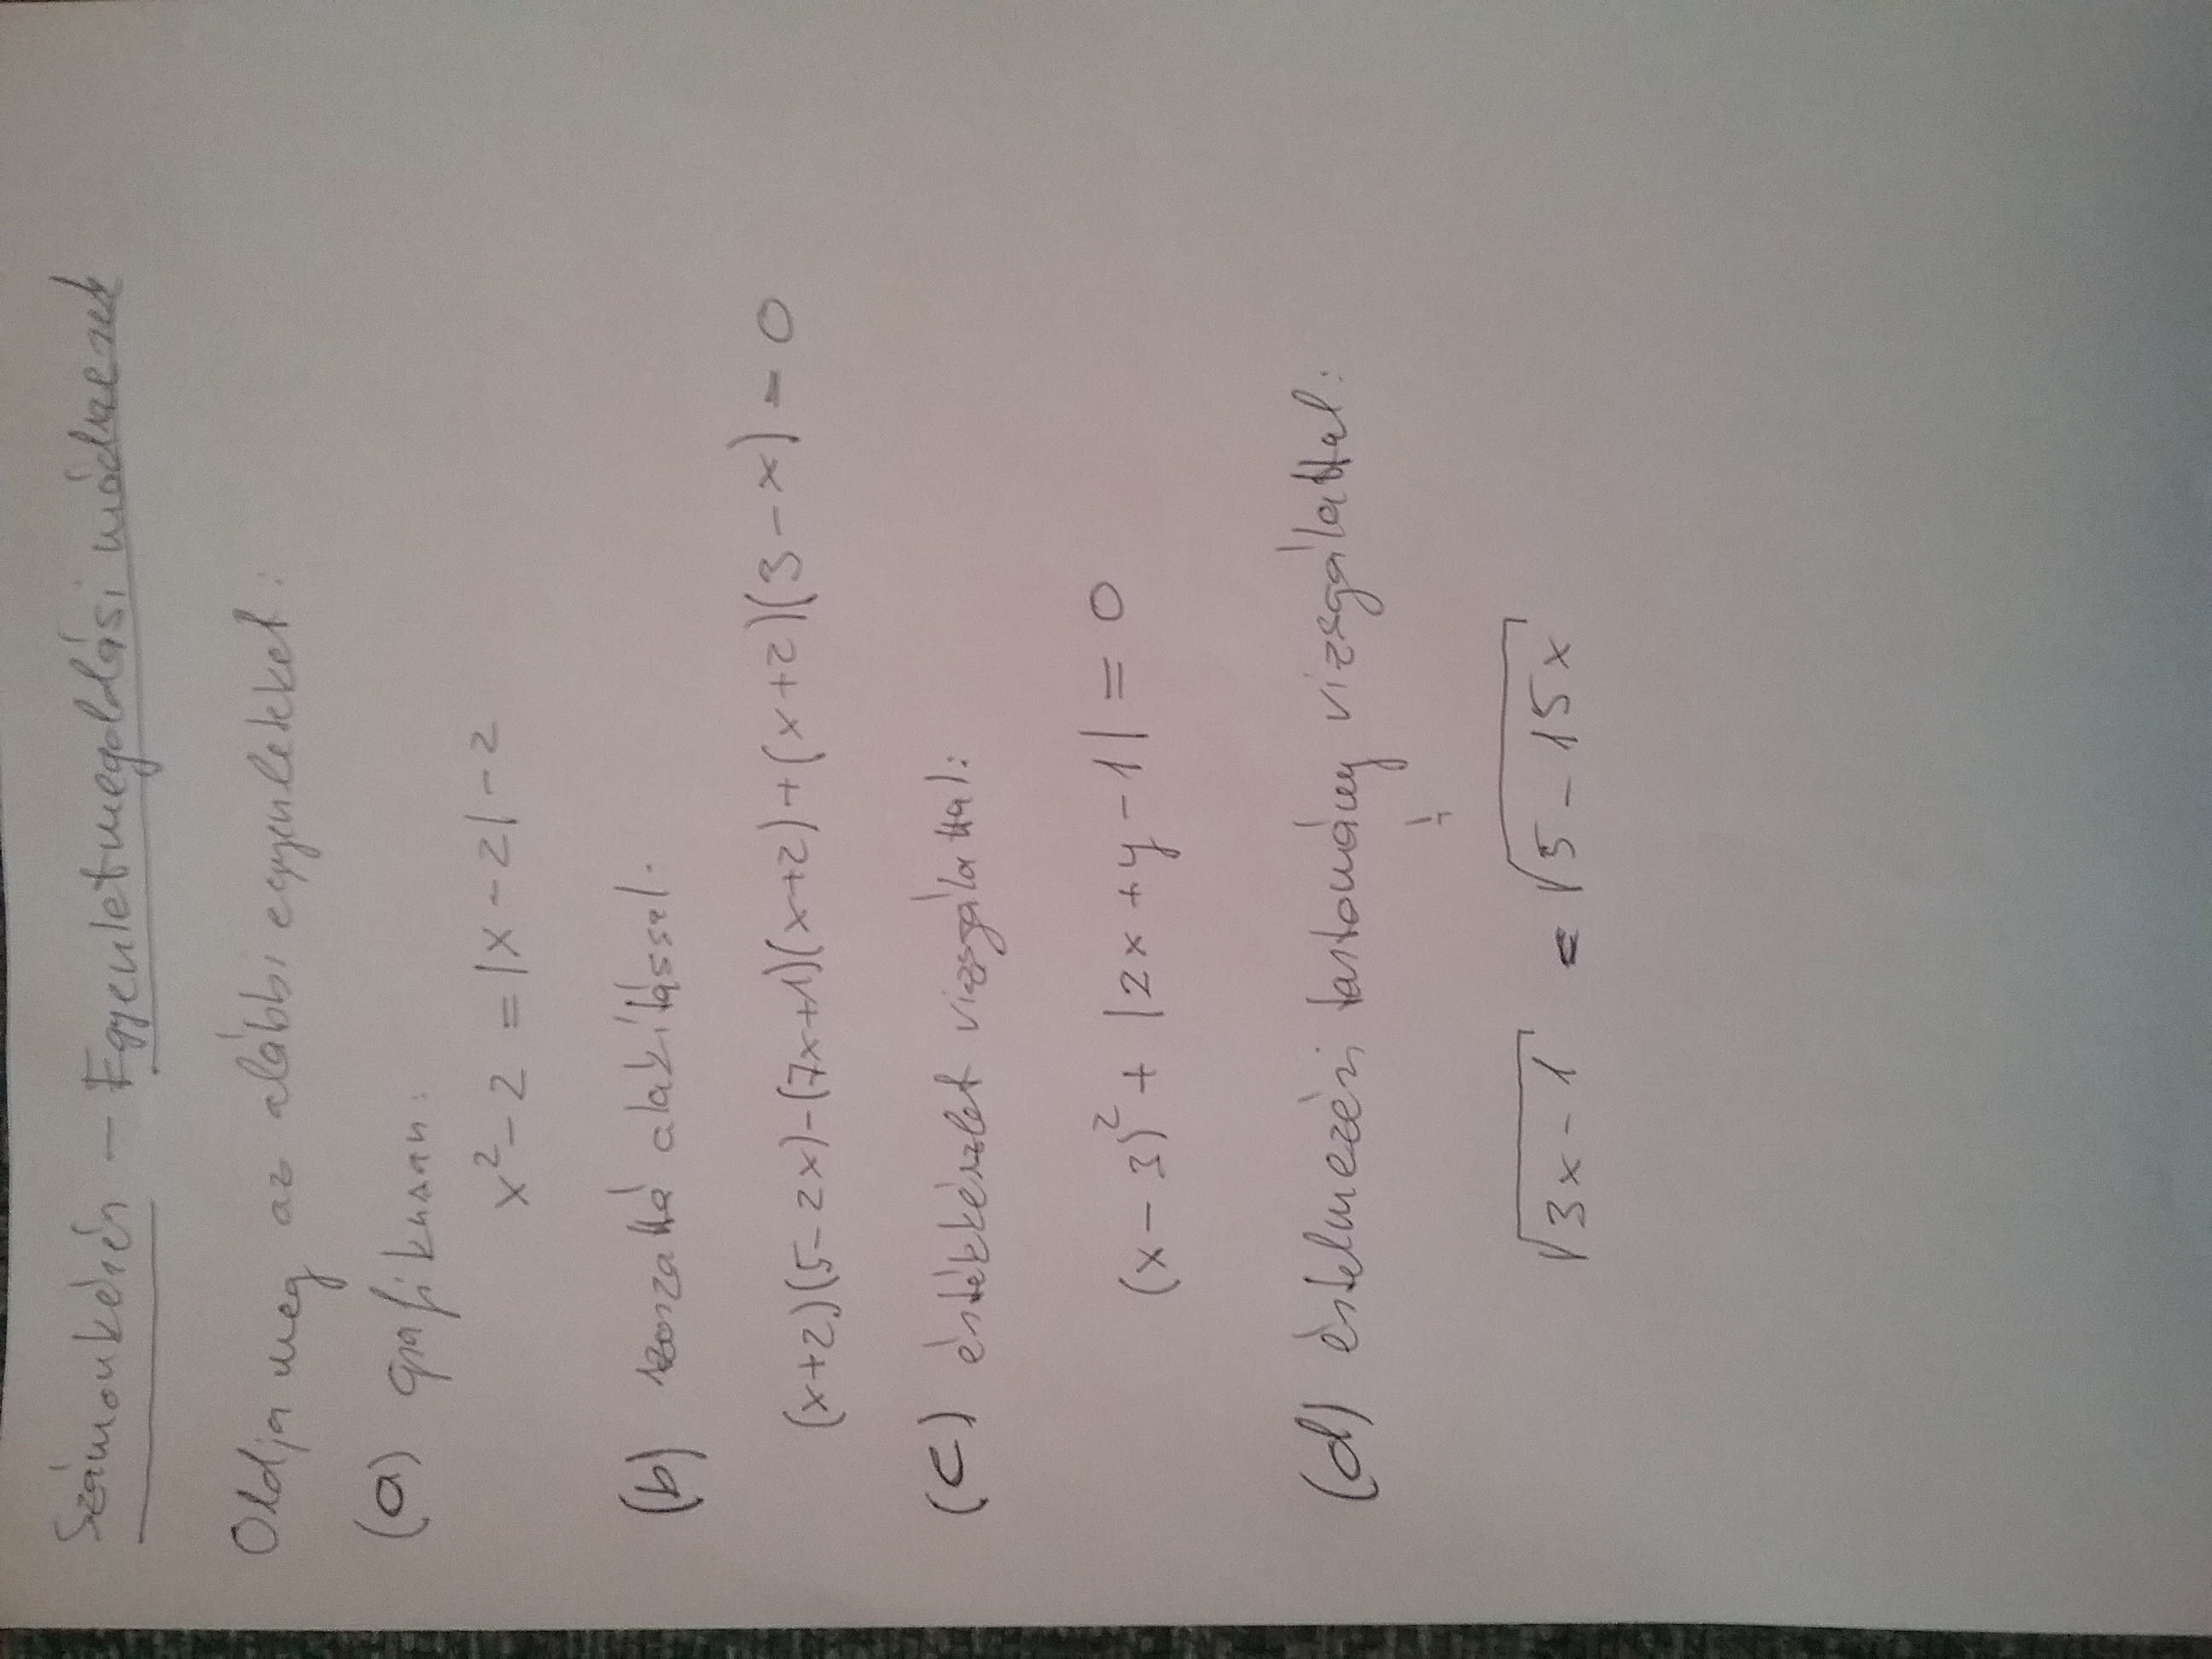 Számonkérés – Egyenletmegoldási módszerek
Oldja meg az alábbi egyenleteket:
(a) grafikusan:
x² - 2 = |x - 2| - 2
(b) szorzattá alakítással:
(x+2)(5-2x)-(7x+1)(x+2)+(x+2)(3-x)=0
(c) értékkészlet vizsgálattal:
(x-3)² + |2x+y-1| = 0
(d) értelmezési tartomány vizsgálattal:
√3x-1 = √5-15x